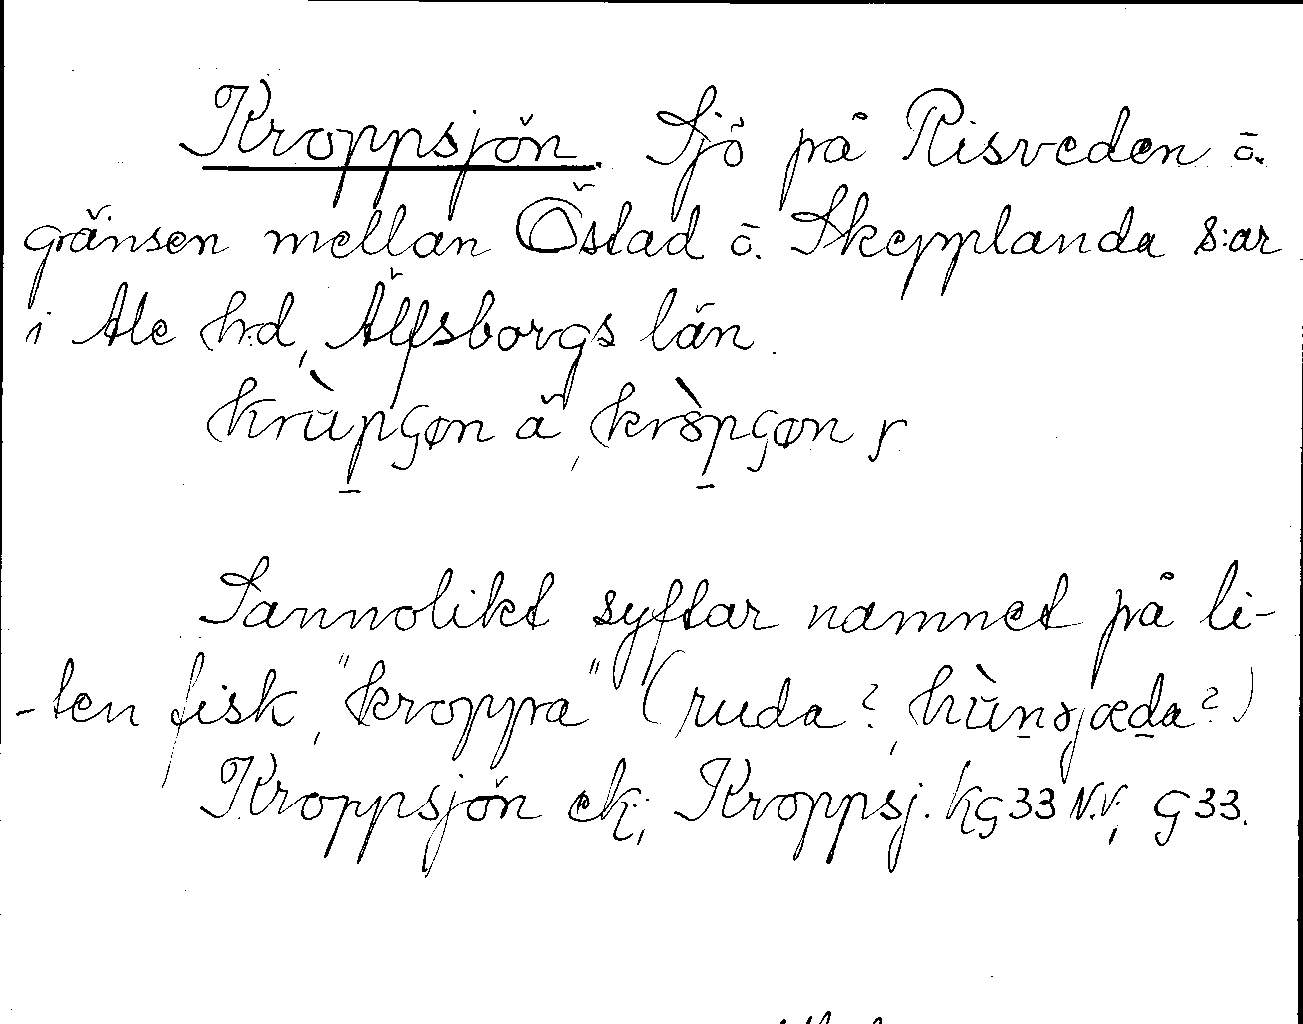 Kroppsjön. Sjö på Risveden å.
gränsen mellan Östad o. Skepplanda s:ar
i Ale hd, Älfsborgs län.
krùpʂøn ä, kròpʂøn r
Sannolikt syftar namnet på li-
-ten fisk, "kroppa" (ruda?,
Kroppsjön ek; Kroppsj. kg 33 N.V; G 33.